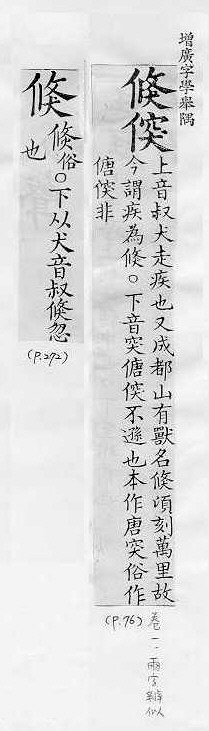 增廣字學舉隅
倏㑮
上音叔犬走疾也又成都山有獸名倏頃刻萬里故
今謂疾為倏。下音突傏㑮不遜也本作唐突俗作
傏㑮非
(P.76) 卷一·兩字辨似
倐
倏俗。下从犬音叔倏忽
也
(P.272)